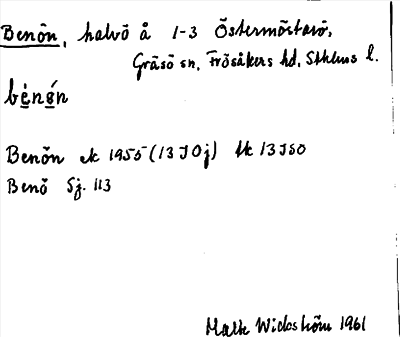 Benön, halvö å 1-3 Östermöstarö,
Gräsö sn, Frösåkers hd, Sthlms l.
bènǿn
Benön ek 1955 (13 J0j) tk 13 JSO
Benö Sj. 113
Mats Widström 1961